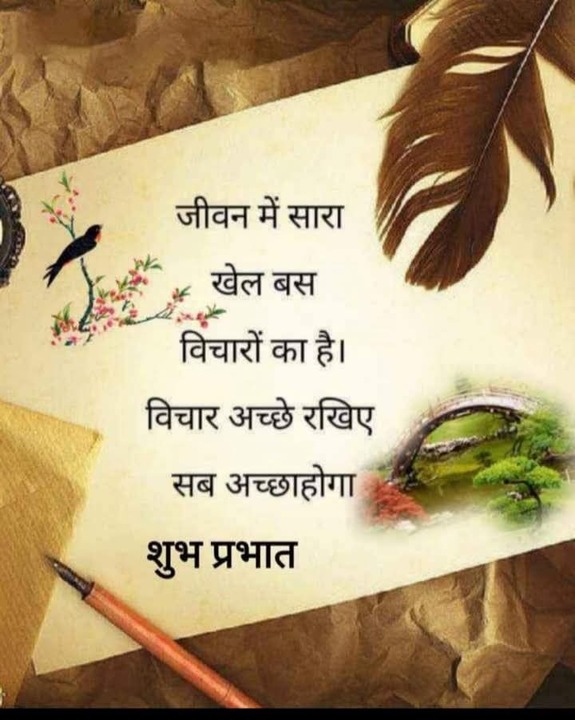 जीवन में सारा
खेल बस
विचारों का है।
विचार अच्छे रखिए
सब अच्छाहोगा
शुभ प्रभात